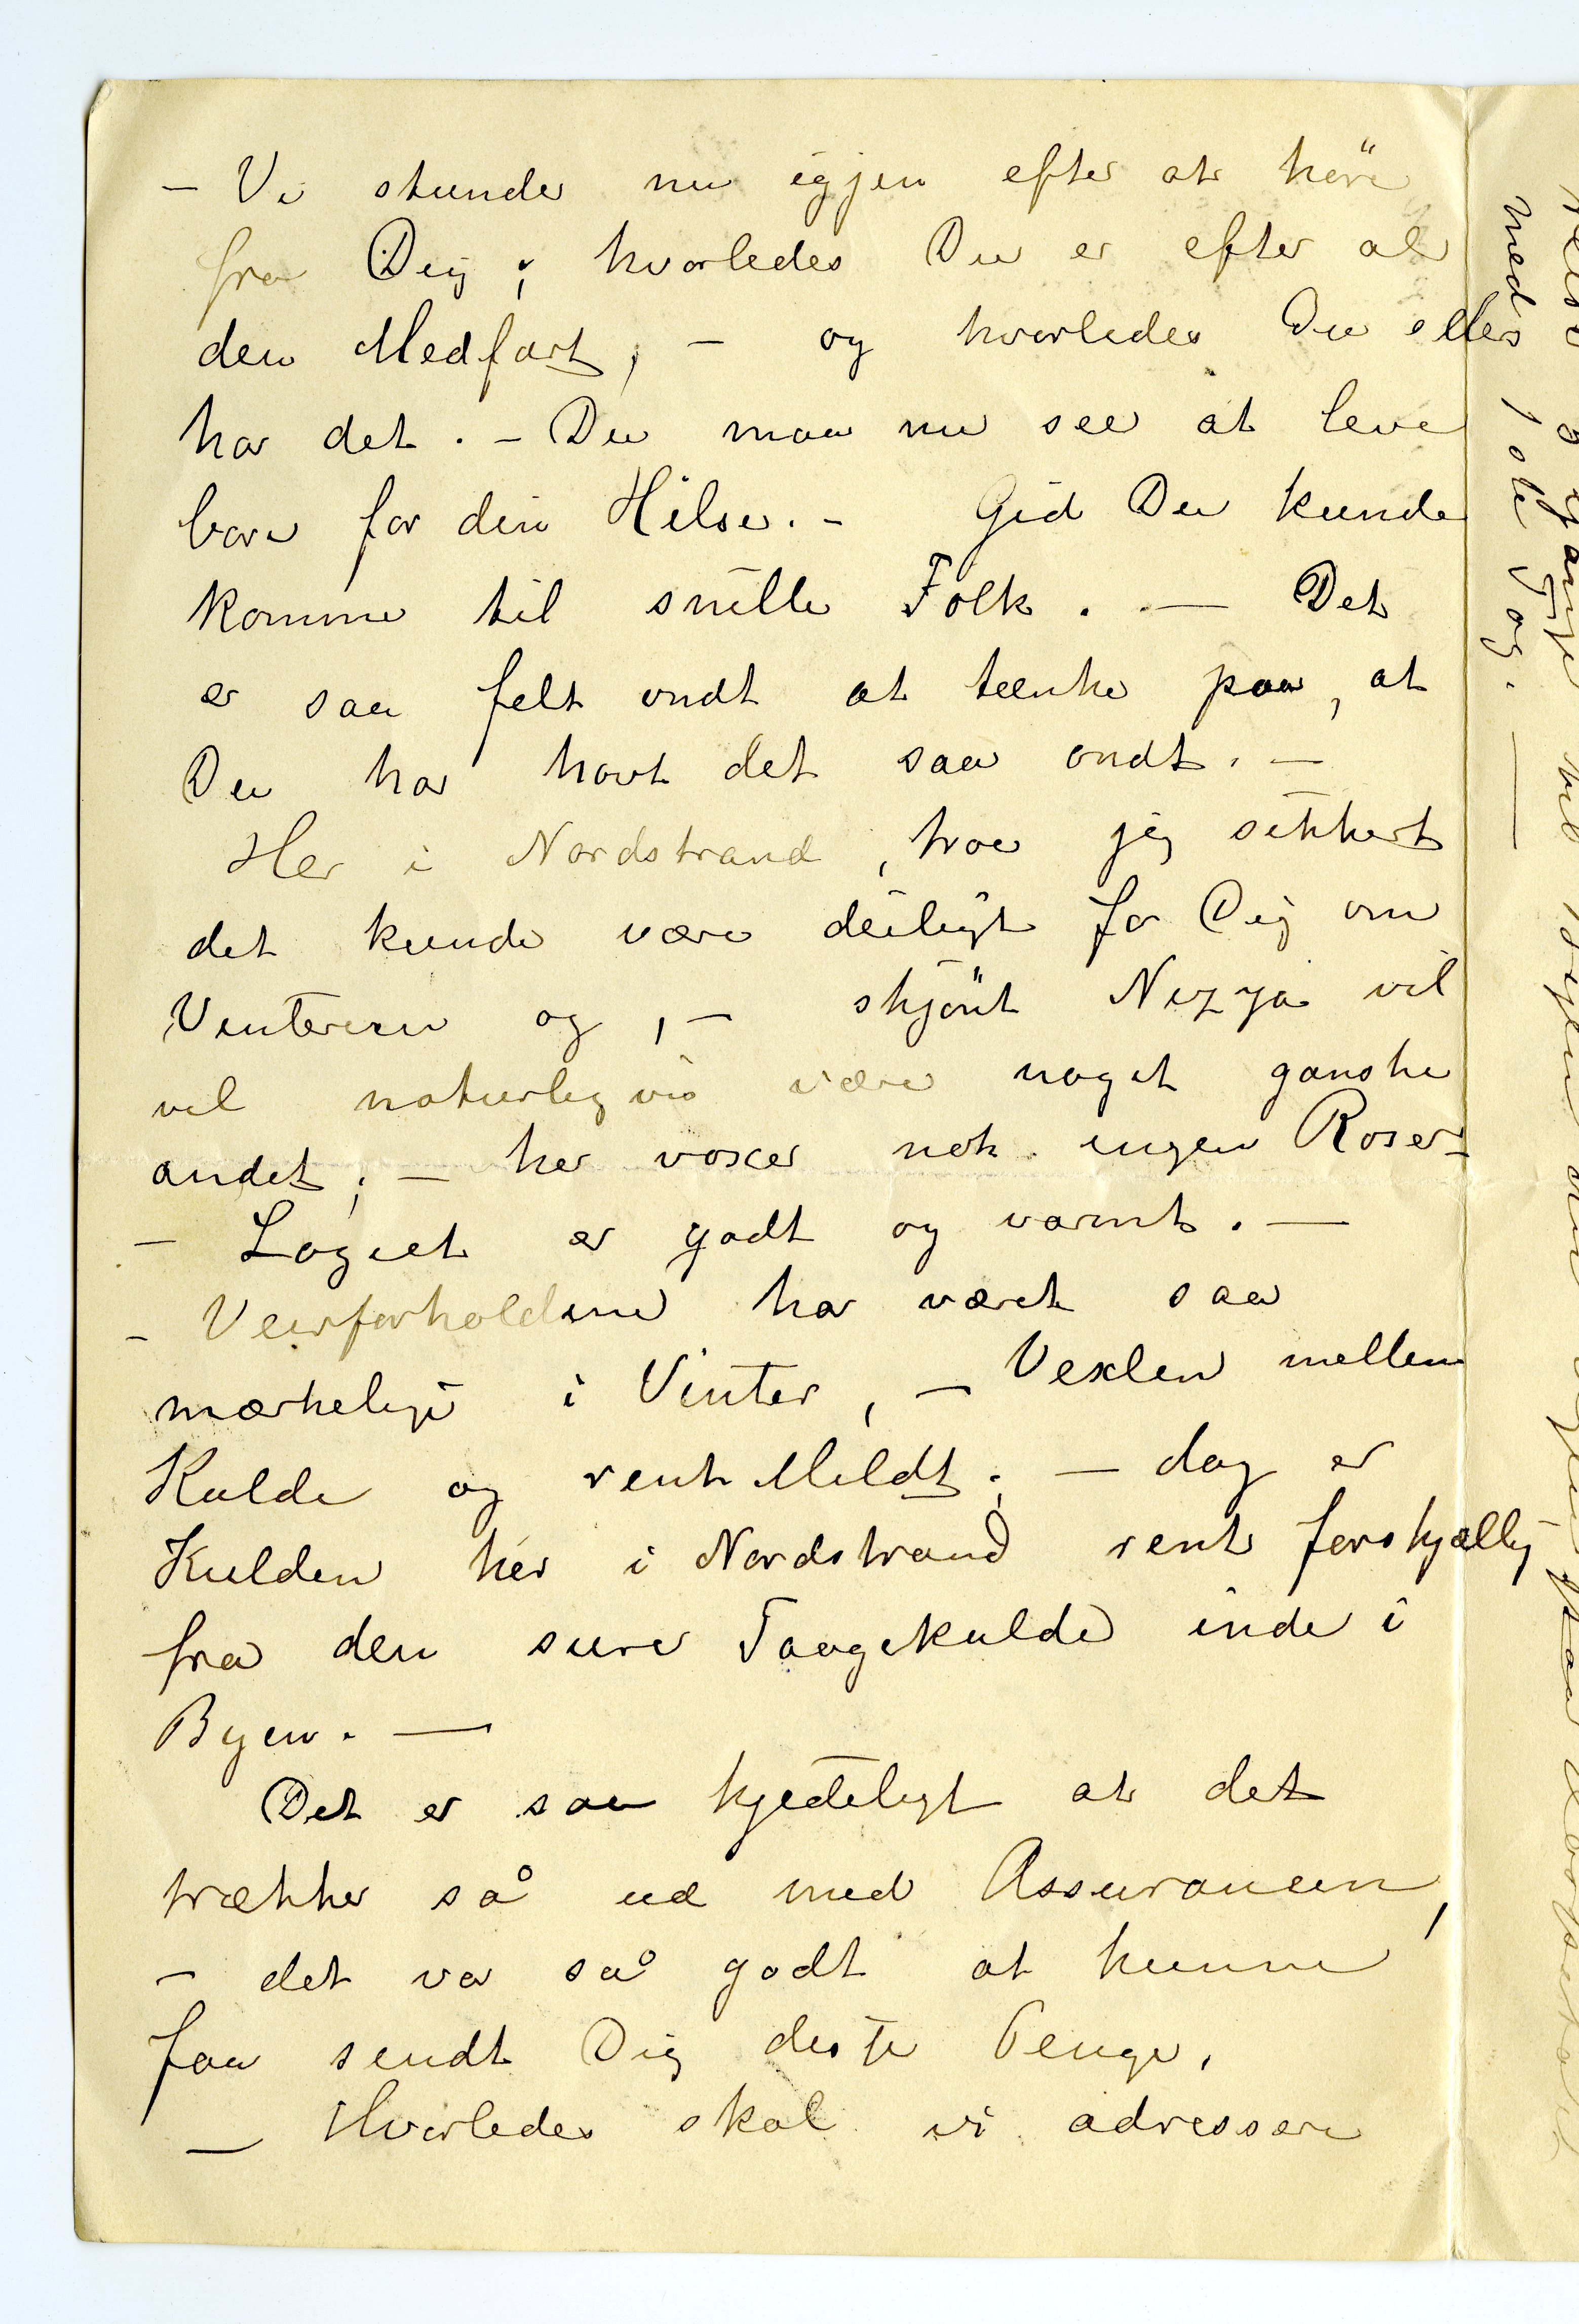 – Vi stunder nu igjen efter at höre
fra Dig; hvorledes Du er efter al
den Medfart, – og hvorledes Du ellers
har det. – Du maa nu see at leve
bare for din Hilse. – Gid Du kunde
komme til snille Folk. . — Det
er saa fælt ondt at tænke paa, at
Du har havt det saa ondt. –
Her i Nordstrand, troer jeg sikkert
det kunde være deiligt for Dig om
Vinteren og, – skjönt Nizza vil
vel naturligvis være noget ganske
andet; – her voxer nok ingen Roser –
– Logiet er godt og varmt. —
– Veirforholdene har været saa
mærkelige i Vinter, – Vexlen mellem
Kulde og rent Mildt; – dog er
Kulden her i Nordstrand rent forskjællig
fra den sure Taagekulde inde i
Byen. —
Det er saa kjedeligt at det
trækker så ud med Assurancen,
– det var så godt at kunne
faa sendt Dig disse Penge.
— Hvorledes skal vi adressere
med 1ste Tog. —